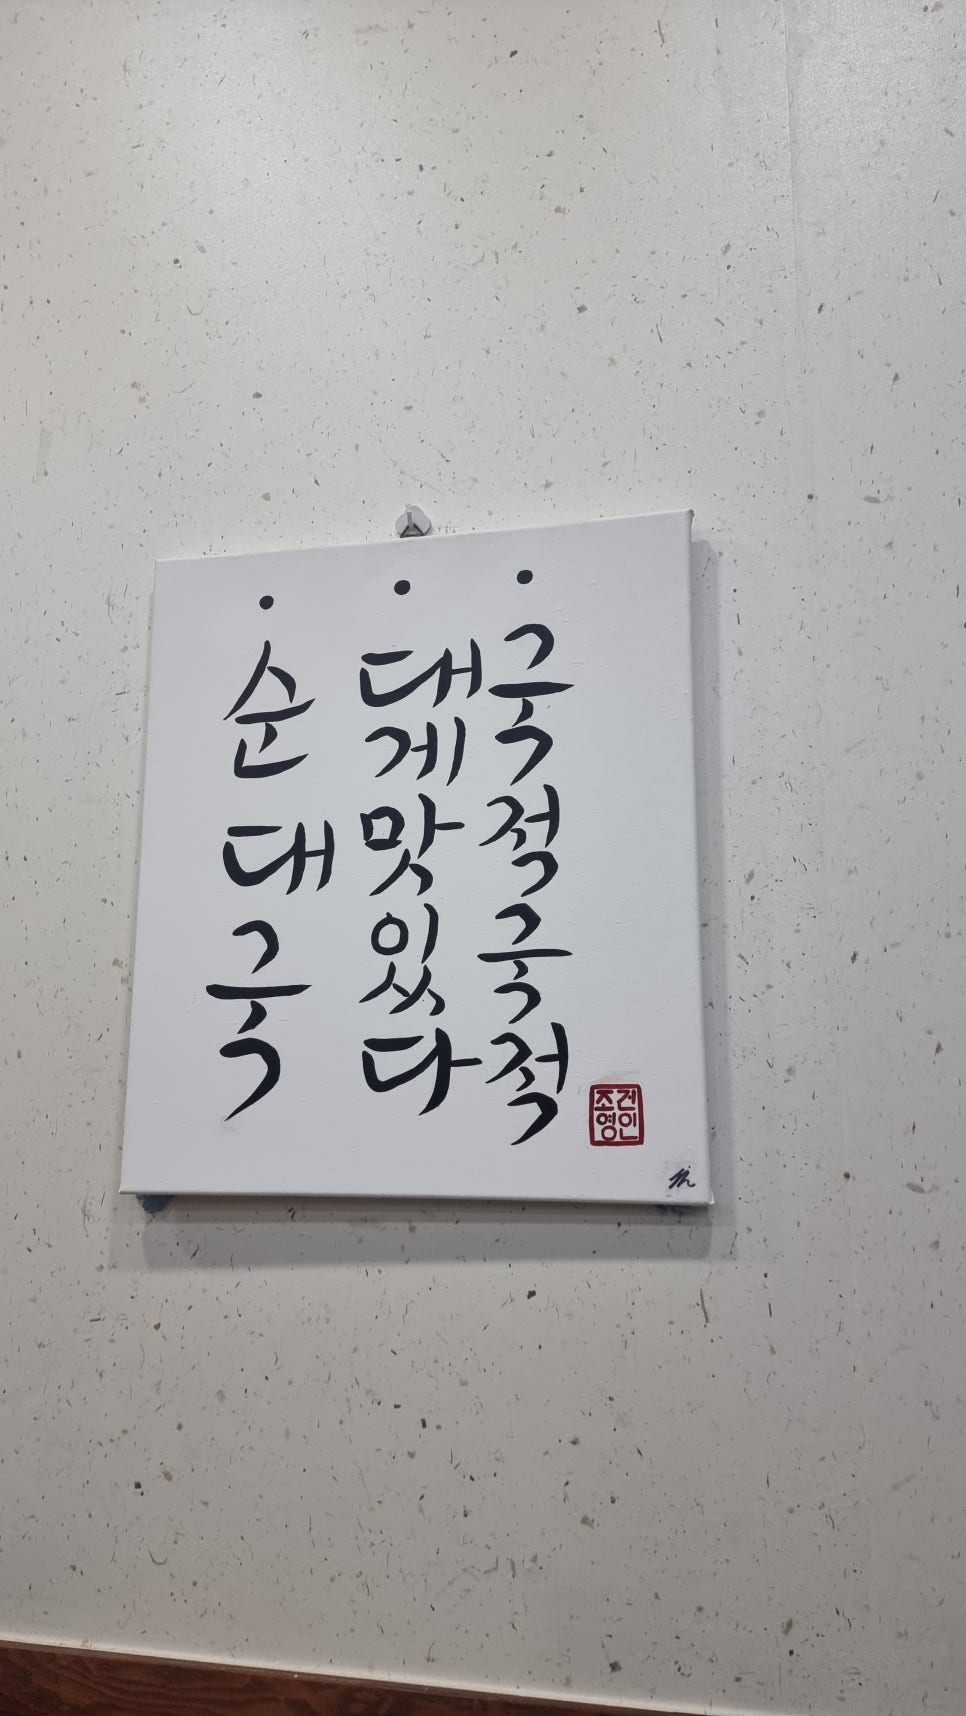 순대국
대게맛있다
국적국적
조영건인